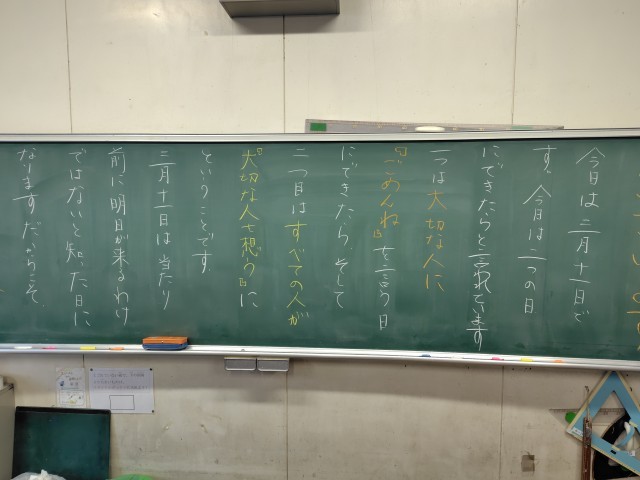 今日は三月十一日で
す。今日は二つの日
にできたらと言われています
一つは大切な人に
『ごめんね』を言う日
にできたら そして
二つ目はすべての人が
『大切な人を想う』に
ということです
三月十一日は当たり
前に明日が来るわけ
ではないと知った日に
なります だからこそ